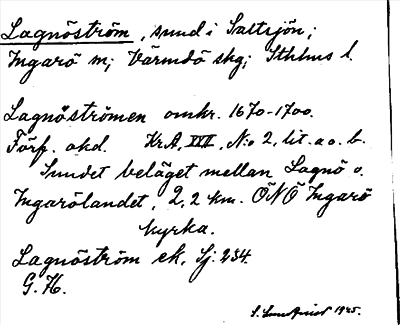 Lagnöström, sund i Saltsjön;
Ingarö m; Värmdö skg; Sthlms l.
Lagnöströmen omkr. 1670-1700.
Förf. okd. Kr.A, XVII, N:o 2, lit. a o. b.
Sundet beläget mellan Lagnö o.
Ingarölandet, 2,2 km. ÖNÖ Ingarö
kyrka.
Lagnöström ek. Sj. 234.
G. H.
S. Sundqvist 1925.